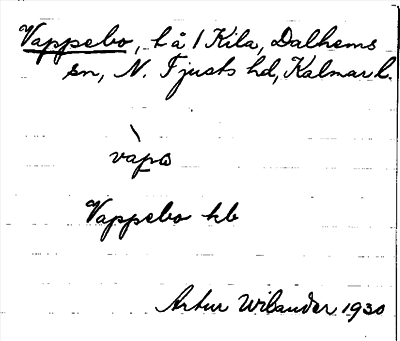 Vappebo, t å 1 Kila, Dalhems
sn, N. Tjusts hd, Kalmar l.
Vappebo kb
Artur Wilander 1930